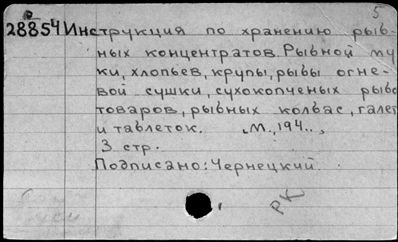 5
28854 Инструкция по хранению рыб-
ных концентратов. Рыбной му
ки, хлопьев, крупы, рыбы огне-
вой сушки, сухокопченых рыбо
товаров, рыбных колбас, галет
и таблеток. М., 194..,
3 стр.
Подписано: Чернецкий.
РК